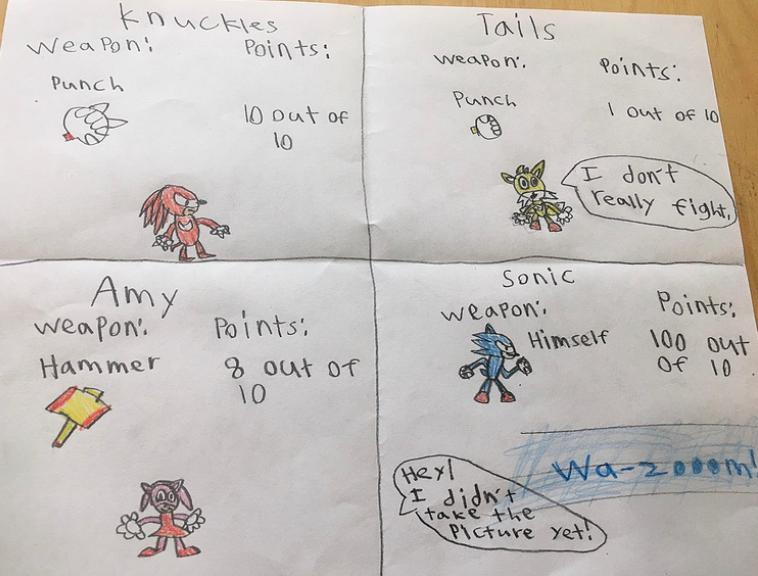 Knuckles
Weapon:
Points:
Punch
10 out of
10
Tails
Weapon:
Points:
Punch
1 out of 10
I don't
really fight.
Amy
Weapon:
Points:
Hammer
8 out of
10
Sonic
Weapon:
Points:
Himself
100 out
of 10
Wa-zooom!
Hey!
I didn't
take the
Picture yet!